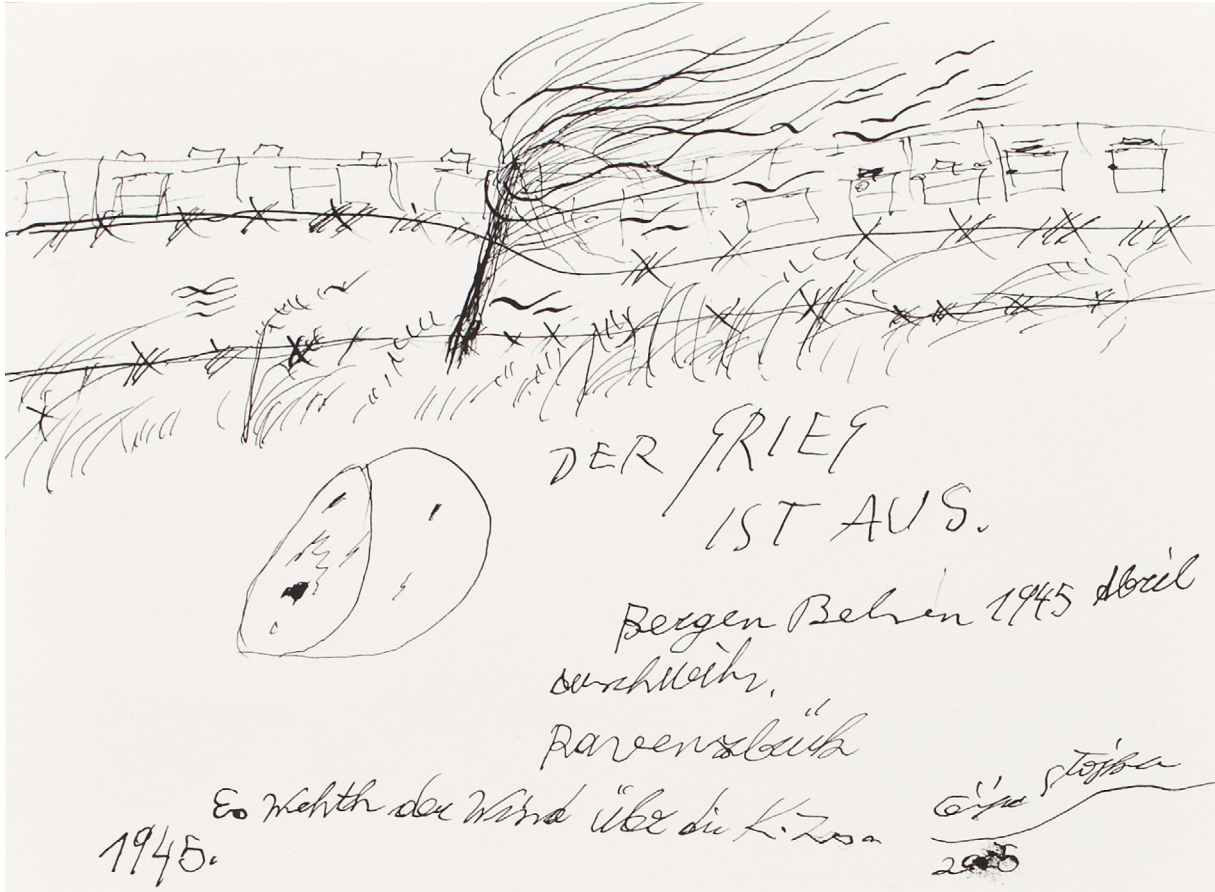 DER GRIEG
IST AUS.
Bergen Belsen 1945 Abril
auschwihz,
Ravenzbück
Es Wehth der Wind über die K.Z
1945.
Ceija Stojka